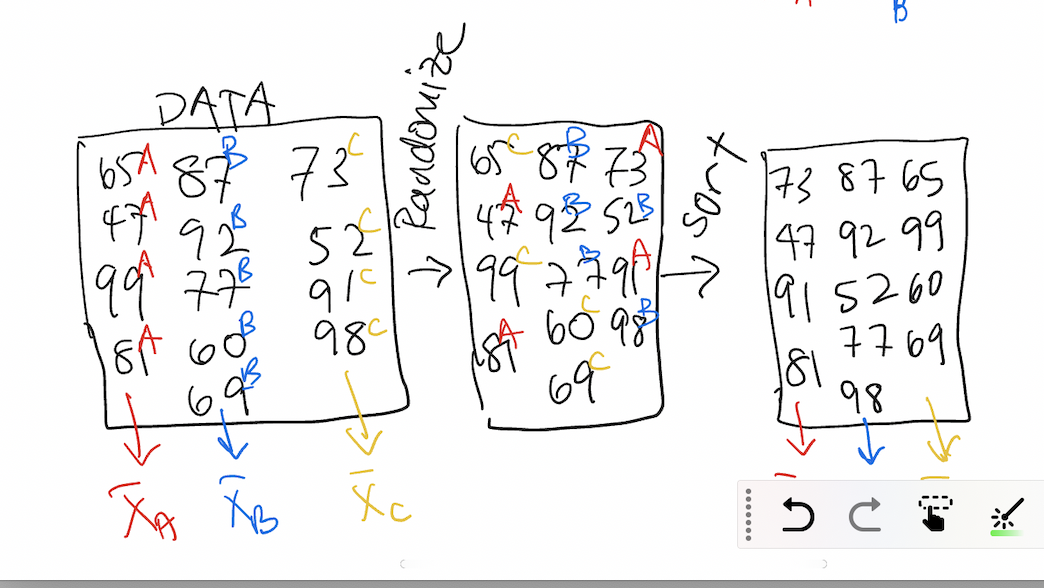 A
B
DATA
65A 87B 73C
47A 92B 52C
99A 77B 91C
81A 60B 98C
69B
X̄A X̄B X̄C
Randomize
65C 87B 73A
47A 92B 52B
99C 77B 91A
81A 60C 98B
69C
Sort
73 87 65
47 92 99
91 52 60
81 77 69
98